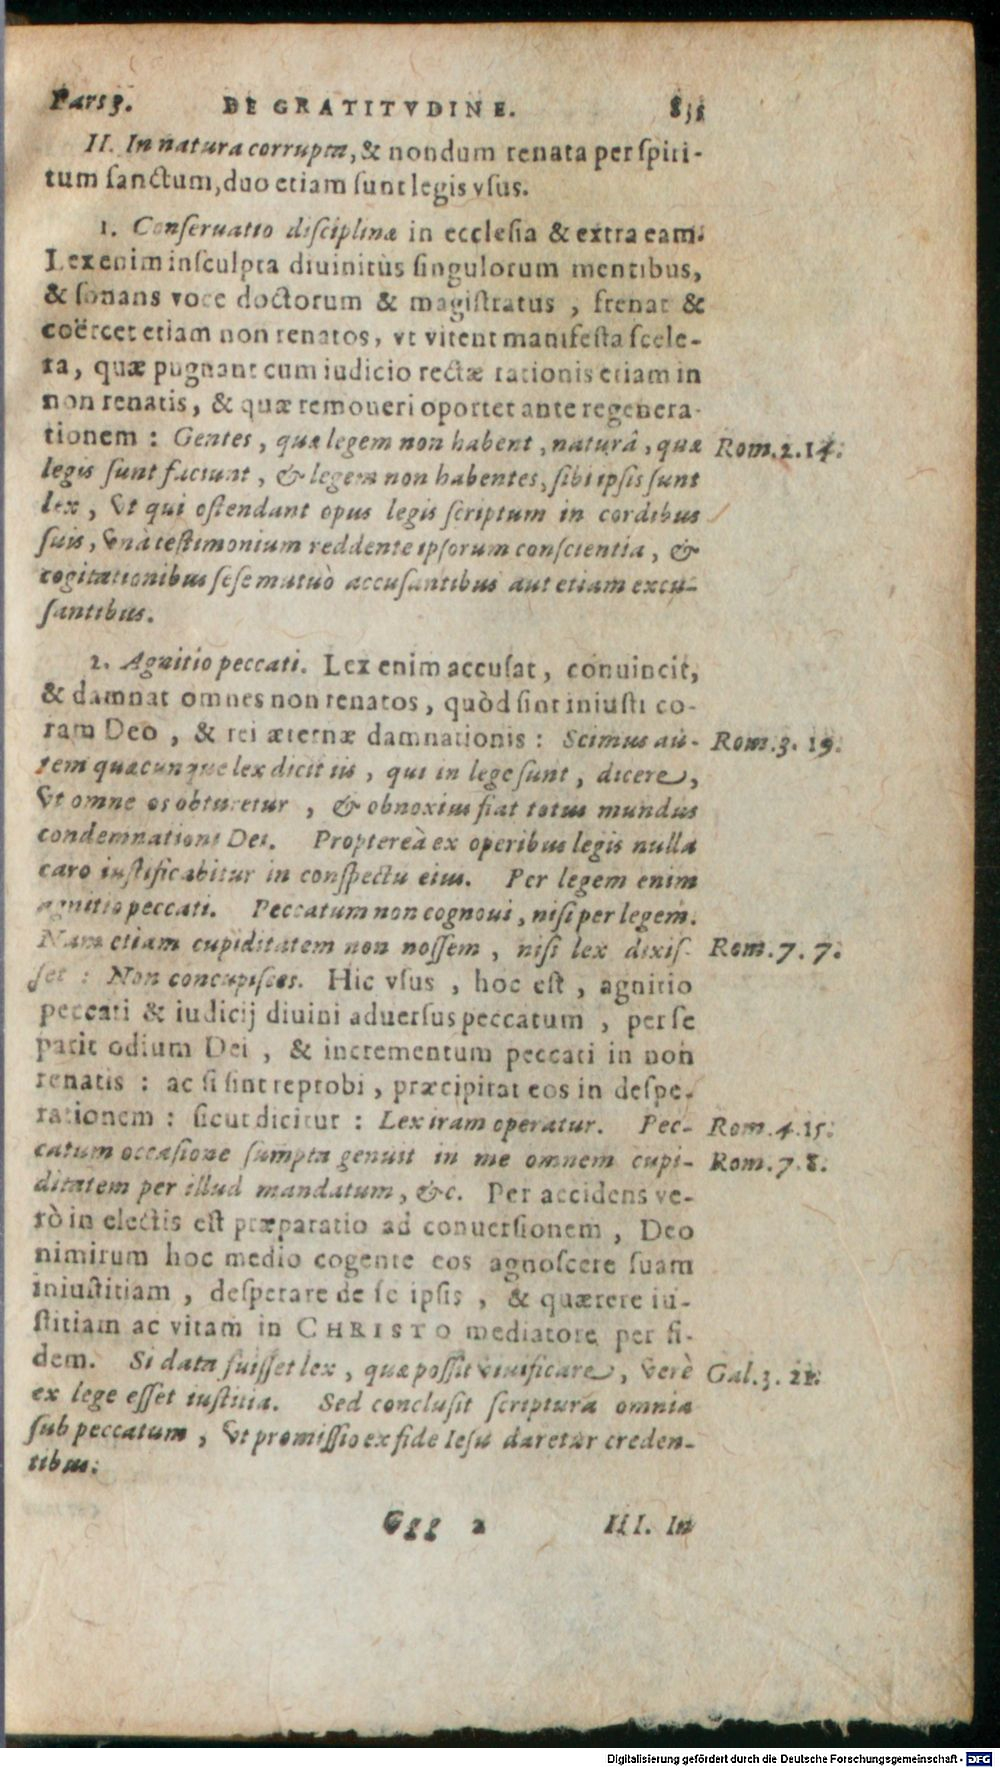 Pars 3. DE GRATITVDINE. 835
II. In natura corrupta, & nondum renata per spiri-
tum sanctum, duo etiam sunt legis vsus.
1. Conseruatio disciplinæ in ecclesia & extra eam:
Lex enim insculpta diuinitùs singulorum mentibus,
& sonans voce doctorum & magistratus, frenat &
coërcet etiam non renatos, vt vitent manifesta scele-
ra, quæ pugnant cum iudicio rectæ rationis etiam in
non renatis, & quæ remoueri oportet ante regenera-
tionem: Gentes, quæ legem non habent, naturâ, quæ Rom. 2. 14.
legis sunt faciunt, & legem non habentes, sibi ipsis sunt
lex, vt qui ostendant opus legis scriptum in cordibus
suis, vnà testimonium reddente ipsorum conscientia, &
cogitationibus sese mutuò accusantibus aut etiam excu-
santibus.
2. Agnitio peccati. Lex enim accusat, conuincit,
& damnat omnes non renatos, quòd sint iniusti co-
ram Deo, & rei æternæ damnationis: Scimus au- Rom. 3. 19.
tem quæcunque lex dicit iis, qui in lege sunt, dicere,
vt omne os obturetur, & obnoxius fiat totus mundus
condemnationi Dei. Proptereà ex operibus legis nulla
caro iustificabitur in conspectu eius. Per legem enim
agnitio peccati. Peccatum non cognoui, nisi per legem.
Nam etiam cupiditatem non nossem, nisi lex dixis- Rom. 7. 7.
set: Non concupisces. Hic vsus, hoc est, agnitio
peccati & iudicij diuini aduersus peccatum, per se
parit odium Dei, & incrementum peccati in non
renatis: ac si sint reprobi, præcipitat eos in despe-
rationem: sicut dicitur: Lex iram operatur. Pec- Rom. 4. 15.
catum occasione sumpta genuit in me omnem cupi- Rom. 7. 8.
ditatem per illud mandatum, &c. Per accidens ve-
rò in electis est præparatio ad conuersionem, Deo
nimirum hoc medio cogente eos agnoscere suam
iniustitiam, desperare de se ipsis, & quærere iu-
stitiam ac vitam in CHRISTO mediatore per fi-
dem. Si data fuisset lex, quæ possit viuificare, verè Gal. 3. 21.
ex lege esset iustitia. Sed conclusit scriptura omnia
sub peccatum, vt promissio ex fide Iesu daretur creden-
tibus.
Ggg 2 III. In
Digitalisierung gefördert durch die Deutsche Forschungsgemeinschaft - DFG